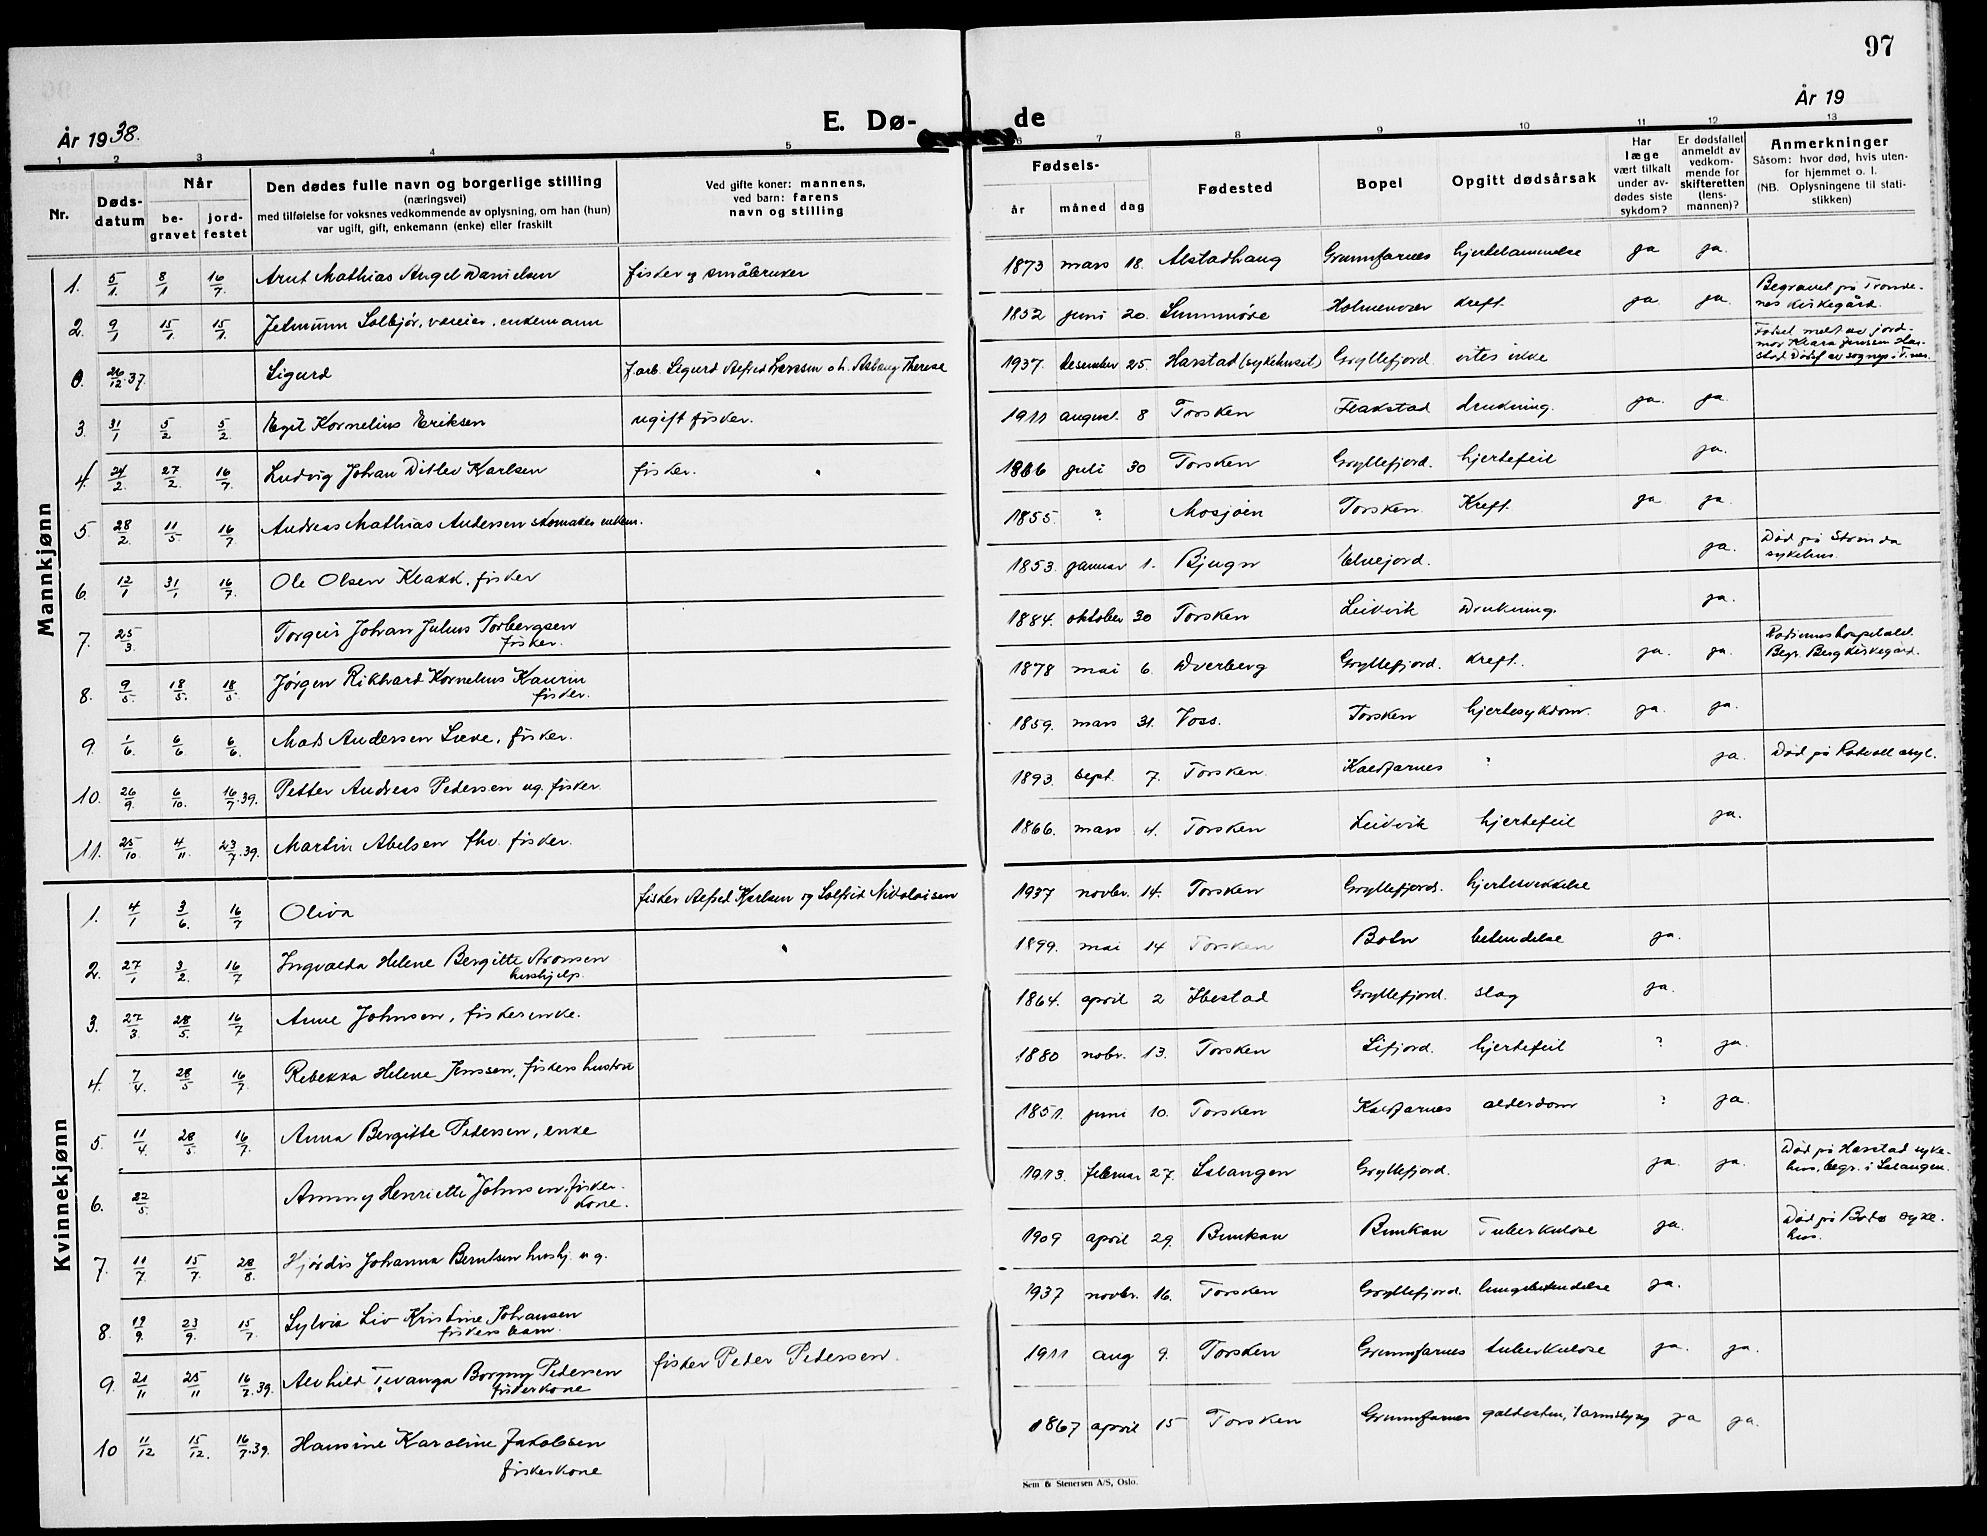 97
År 1938.
E. Dø-
de
År 19
1 2 3 4 5 6 7 8 9 10 11 12 13
Nr.
Døds-
datum
Når
be-
gravet
jord-
festet
Den dødes fulle navn og borgerlige stilling
(næringsvei)
med tilføielse for voksnes vedkommende av oplysning, om han (hun)
var ugift, gift, enkemann (enke) eller fraskilt
Ved gifte koner: mannens,
ved barn: farens
navn og stilling
Fødsels-
år måned dag
Fødested
Bopel
Opgitt dødsårsak
Har
læge
vært tilkalt
under av-
dødes siste
sykdom?
Er dødsfallet
anmeldt av
vedkom-
mende for
skifteretten
(lens-
mannen)?
Anmerkninger
Såsom: hvor død, hvis uten-
for hjemmet o. l.
(NB. Oplysningene til stati-
stikken)
Mannkjønn
1. 5/1 8/1 16/7. Arnt Mathias Angel Danielsen fisker og småbruker 1873 mars 18. Alstadhaug Grunnfarnes hjertelammelse ja ja.
2. 9/1 15/1. 15/1. Jetmunn Solbjør, væreier, enkemann 1852 juni 20. Sunnmøre Holmenvær kreft. ja ja. Begravet på Tronde-
nes kirkegård.
0. 26/12.37. Sigurd f. arb. Sigurd Alfred Larssen o. h. Aslaug Therese 1937. desember 25. Harstad (sykehuset) Gryllefjord. vites ikke Fødsel meldt av jord-
mor Klara Jenssen Har-
stad
3. 31/1 5/2 5/2. Egil Kornelius Eriksen ugift fisker. 1911 august. 8 Torsken Flakstad drukning. ja. ja.
4. 24/2. 27/2. 16/7. Ludvig Johan Ditlev Karlsen fisker. 1866 juli 30 Torsken Gryllefjord. hjertefeil ja.
5. 28/2. 11/5. 16/7. Andreas Mathias Andersen skomaker enkem. 1855. ? Mosjøen Torsken Kreft. ja ja.
6. 12/1 31/1 16/7. Ole Olsen Klakk, fisker 1853. januar 1. Bjugn Elvejord. ja. Død på
sykehus.
7. 25/3 Torgeir Johan Julius Torbergsen
fisker. 1884. oktober 30 Torsken Leikvik Drukning. ja.
8. 9/5. 18/5. 18/5. Jørgen Rikhard Kornelius Kaurin
fisker. 1878 mai 6. Dverberg Gryllefjord. kreft. ja. ja. Radiumhospitalet.
Begr. Berg kirkegård.
9. 1/6. 6/6 6/6. Mads Andersen fisker. 1859. mars 31. Voss. Torsken hjertesykdom. ja. ja.
10. 26/9. 6/10. 16/7.39. Petter Andreas Pedersen ug. fisker. 1893. sept. 7. Torsken. Kaldfarnes ? ja. Død på Rotvoll asyl.
11. 25/10. 4/11. 23/7.39. Martin Abelsen fhv. fisker. 1866. mars 4. Torsken Leikvik hjertefeil ja.
Kvinnekjønn
1. 4/1 3/6. 16/7 Oliva fisker Alfred Karlsen og Solfrid Nikolaisen 1937 novbr. 14. Torsken Gryllefjord. hjertesvekkelse
2. 27/1 3/2. 16/7 Ingvalda Helene Bergitte Aronsen
hushjelp. 1899. mai 14 Torsken Botn betendelse ja.
3. 27/3. 28/5. 16/7 Anne Johnsen, fiskerenke. 1864. april 2 Ibestad Gryllefjord. slag ja.
4. 7/4. 28/5 16/7. Rebekka Helene Jenssen, fiskers hustru 1880 nobr. 13. Torsken Lifjord. hjertefeil ? ja.
5 11/4. 28/5. 16/7. Anna Bergitte Pedersen, enke 1851. juni 10. Torsken Kaldfarnes alderdom ? ja.
6. 22/5. Ammy Henriette Johnsen, fisker-
kone. 1913. februar 27. Salangen Gryllefjord. ja. ja. Død på Harstad syke-
hus, begr. i Salangen.
7. 11/7 15/7. 28/8. Hjørdis Johanna Berntsen hushj. ug. 1909 april 29. Bunkan Bunkan Tuberkulose ja. Død på Bodø syke-
hus.
8. 19/9. 23/9. 15/7. Sylvia Liv Kristine Johansen
fiskers barn. 1937 novbr. 16. Torsken Gryllefjord. lungebetendelse ja.
9. 21/11 25/11 16/7.39. Alvhild Borgny Pedersen
fiskerkone fisker Peder Pedersen. 1911 aug 9. Torsken Grunnfarnes tuberkulose ja. ja.
10 11/12 15/12. 16/7.39. Hansine Karoline Jakobsen
fiskerkone 1867 april 15 Torsken Grunnfarnes gallesten, tarmslyng ja ja.
Sem & Stenersen A/S, Oslo.